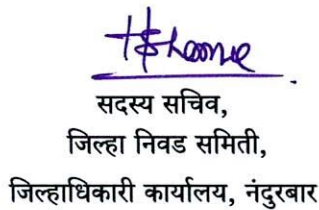 सदस्य सचिव,
जिल्हा निवड समिती,
जिल्हाधिकारी कार्यालय, नंदुरबार